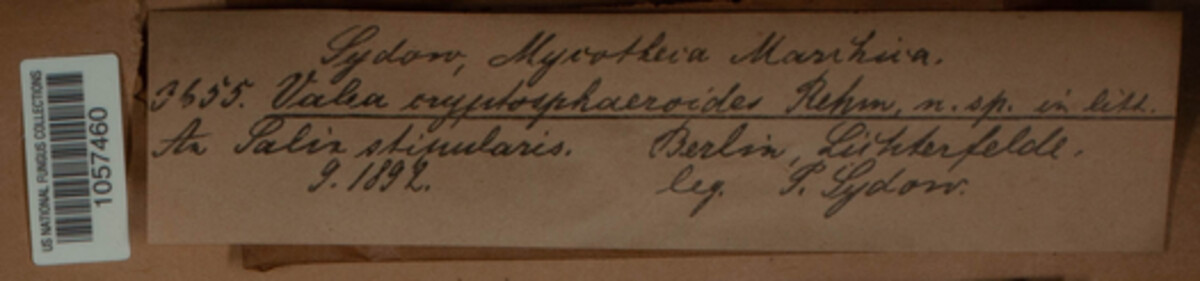 US NATIONAL FUNGUS COLLECTIONS
1057460
Sydow, Mycotheca Marchica.
3655. Valsa cryptosphaeroides Rehm, n. sp. in litt.
An Salix stipularis. Berlin, Lichterfelde.
9. 1892. leg. P. Sydow.